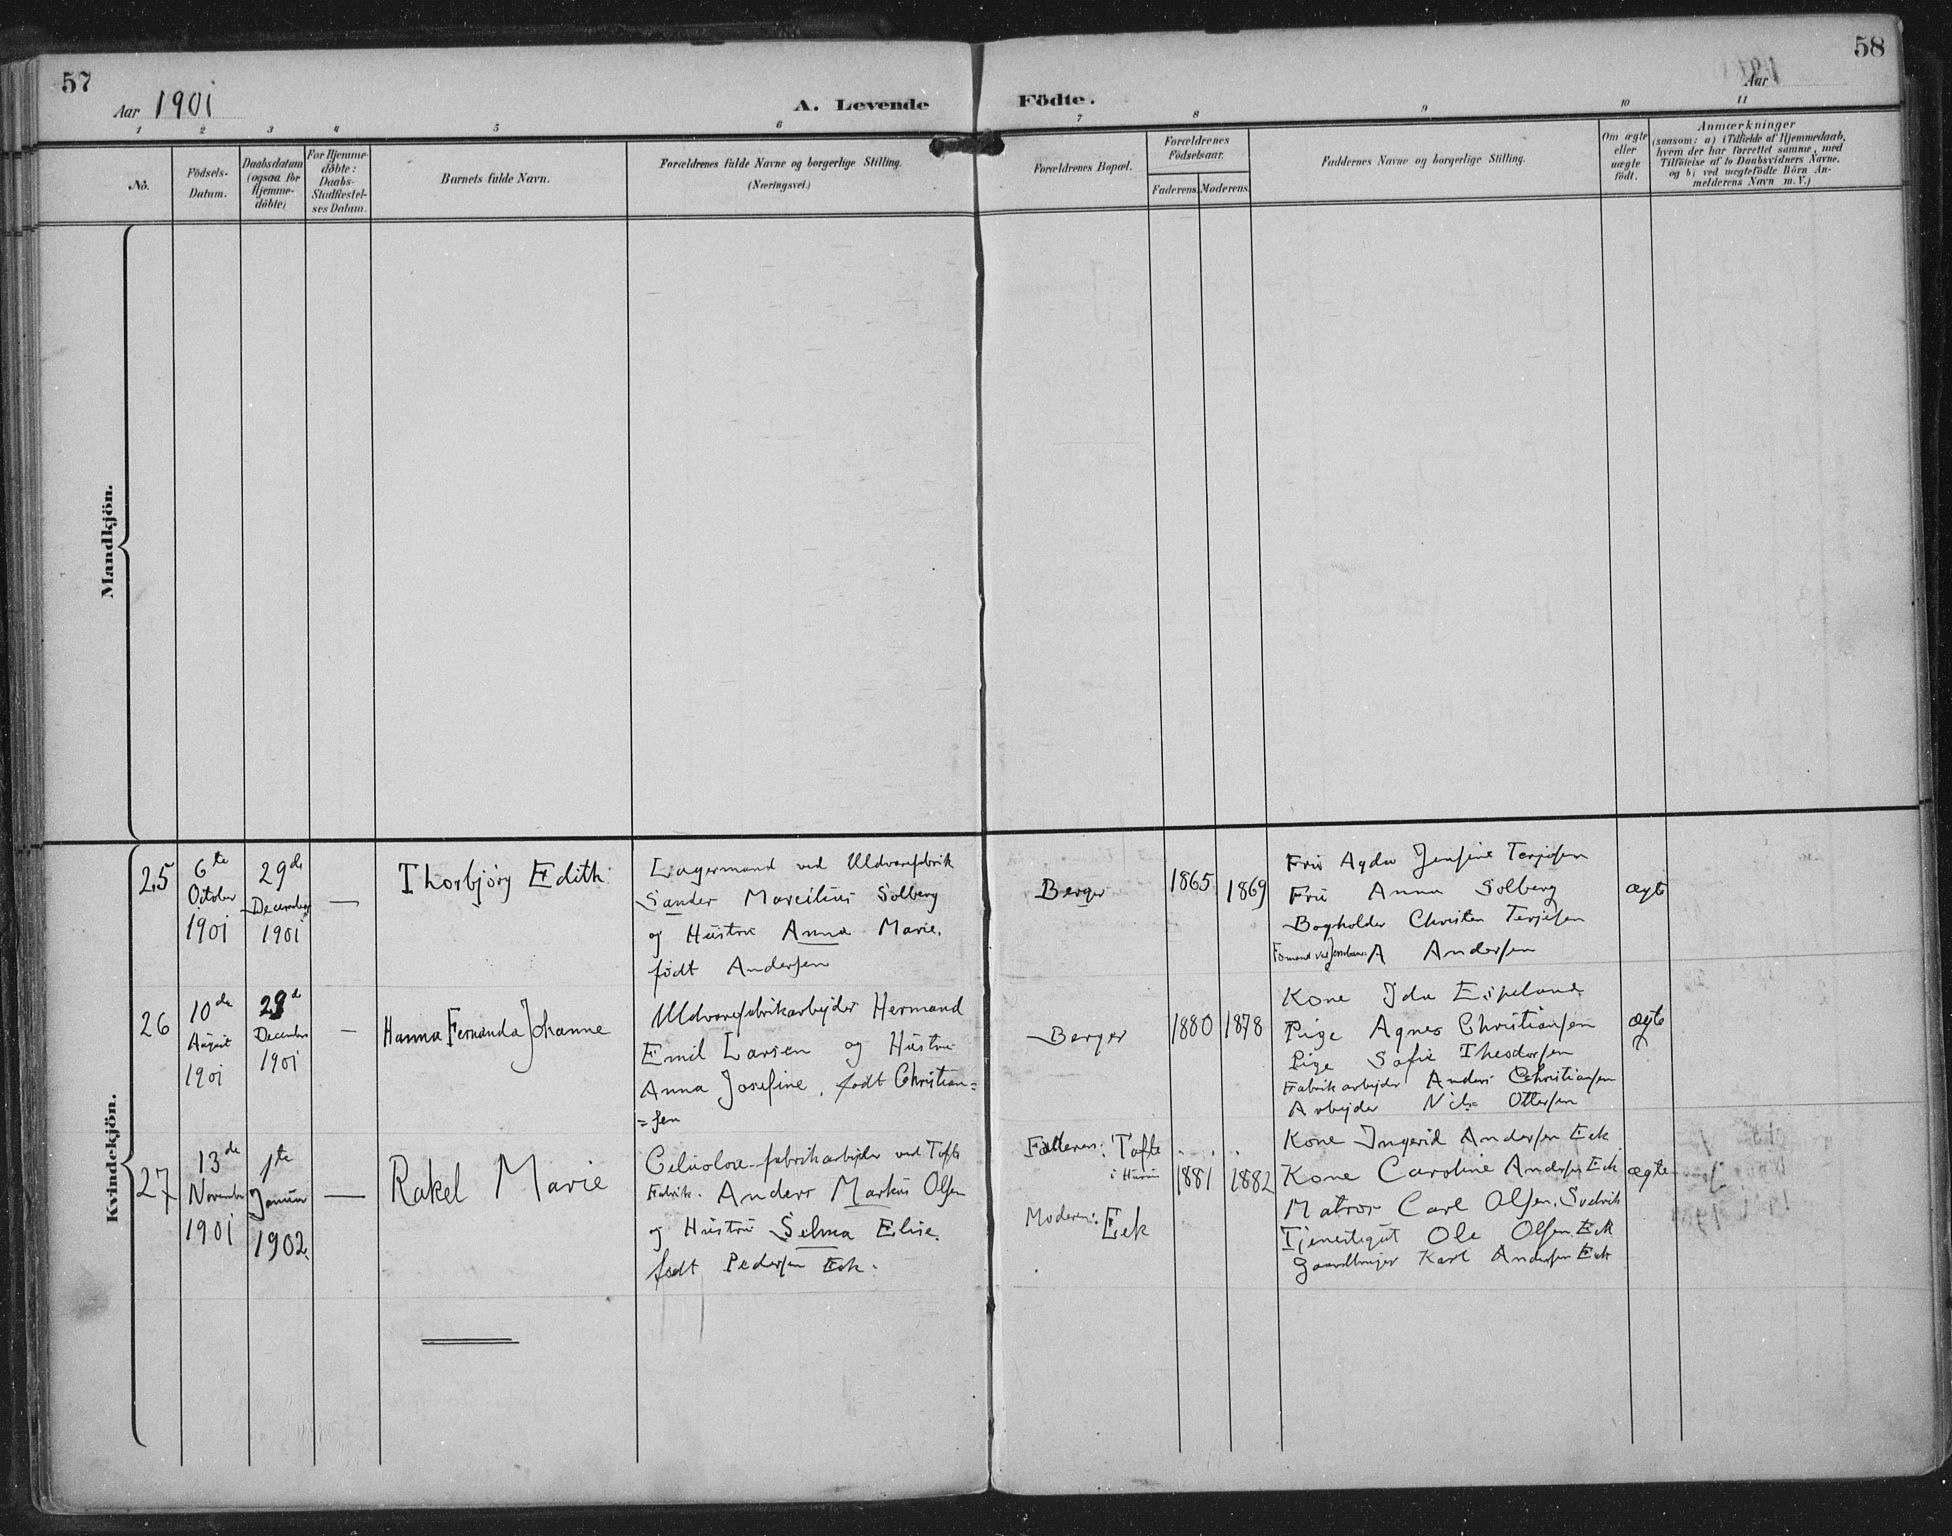 57
Aar 1901
A. Levende Födte.
58
Aar
1 2 3 4 5 6 7 8 9 10 11
No.
Födsels-
Datum.
Daabsdatum
(ogsaa for
Hjemme-
döbte)
For Hjemme-
döbte:
Daabs-
Stadfæstel-
ses Datum.
Barnets fulde Navn.
Forældrenes fulde Navne og borgerlige Stilling.
(Næringsvei.)
Forældrenes Bopæl.
Forældrenes
Födselsaar.
Faderens.
Moderens.
Faddernes Navne og borgerlige Stilling.
Om ægte
eller
uægte
födt.
Anmærkninger
(saasom: a) i Tilfælde af Hjemmedaab,
hvem der har forrettet samme, med
Tilföielse af to Daabsvidners Navne.
og b) ved uægtefödte Börn An-
melderens Navn m. V.)
Mandkjön.
Kvindekjön.
25
6te
October
1901
29de
December
1901
—
Thorbjörg Edith
Lagermand ved Uldvarefabrik
Sander Marcilius Solberg
og Hustru Anna Marie,
födt Andersen
Berger
1865
1869
Fru Agda Jensine Terjesen
Fru Anna Solberg
Bogholder Christen Terjesen
A Andersen
ægte
26
10de
August
1901
29d
December
1901
—
Hanna Fernanda Johanne
Uldvarefabrikarbejder Hermand
Emil Larsen og Hustru
Anna Josefine, födt Christian=
=sen
Berger
1880
1878
Kone Ida Espeland
Pige Agnes Christiansen
Pige Sofie Theodorsen
Fabrikarbejder Anders Christiansen
Arbejder Nils Ottersen
ægte
27
13de
November
1901
1te
Januar
1902.
—
Rakel Marie
Celuolose-fabrikarbejder ved Tofte
Fabrik. Anders Markus Olsen
og Hustru Selma Elise.
födt Pedersen Eek.
Faderen: Tofte
i Hurum
Moderen: Eek
1881
1882
Kone Ingerid Andersen Eek
Kone Caroline Andersen Eek
Matros Carl Olsen, Svelvik
Tjenestegut Ole Olsen Eek
Gaardbruger Karl Andersen Eek
ægte